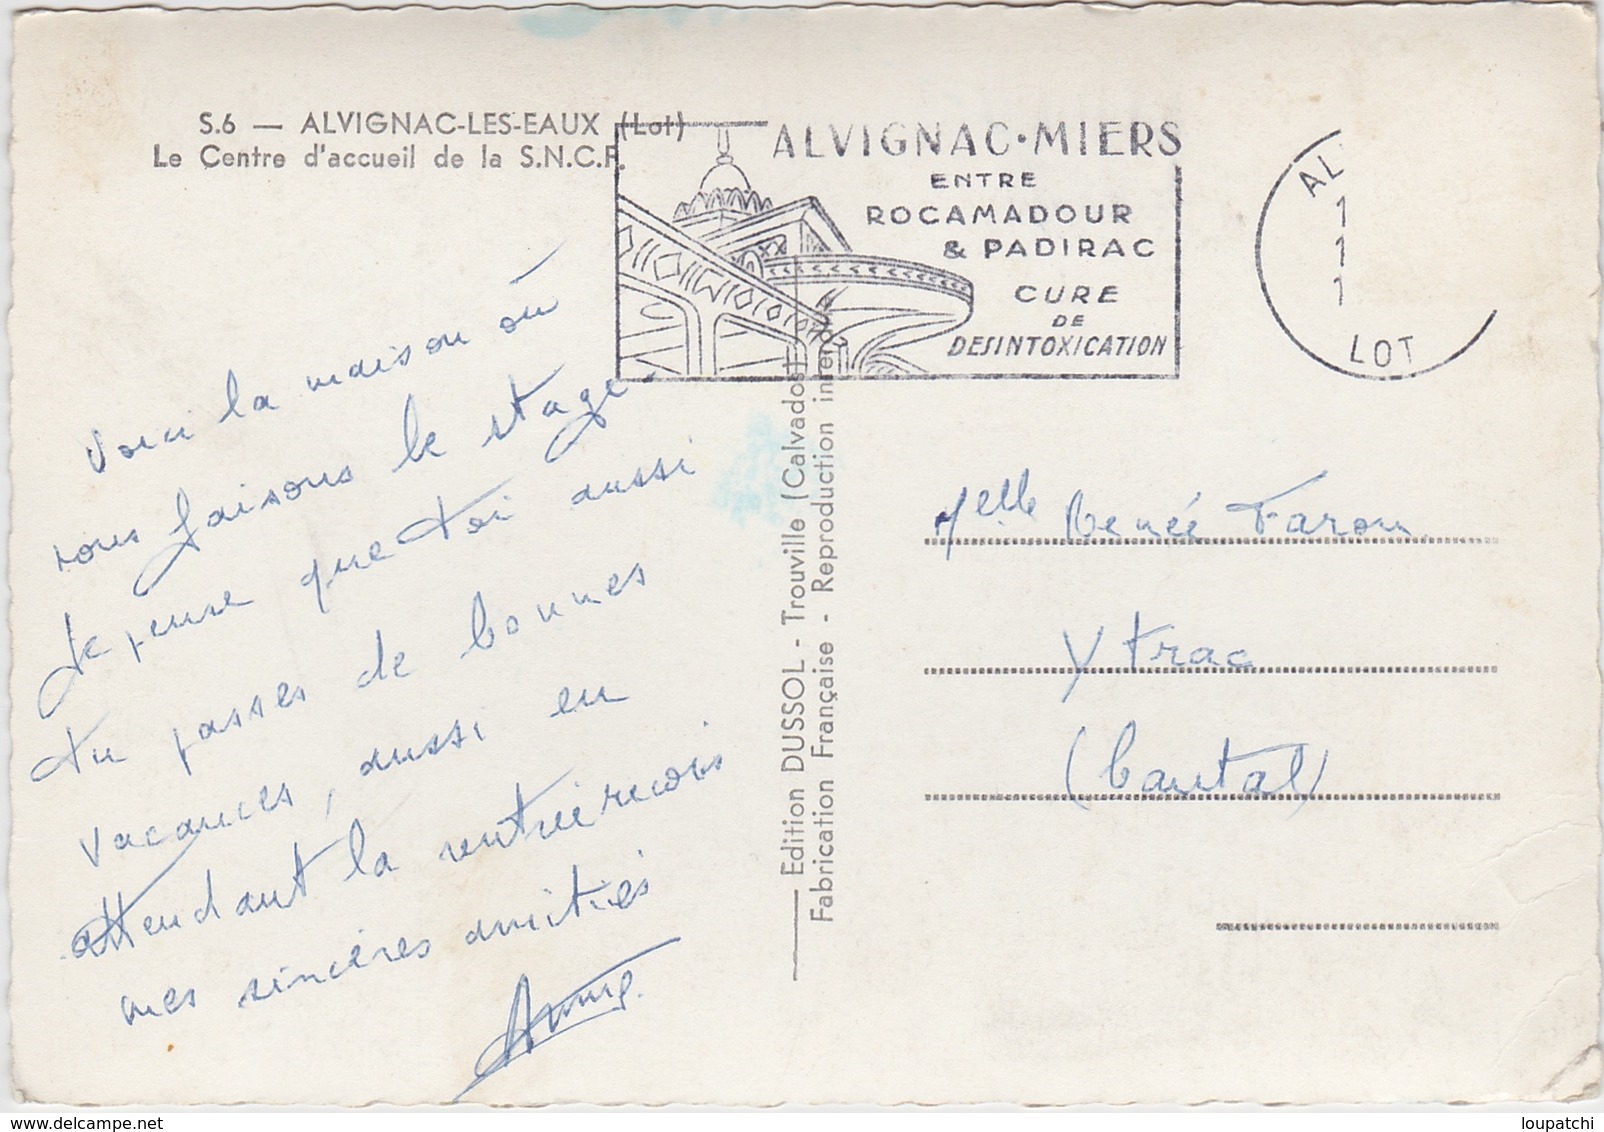 S.6 — ALVIGNAC-LES-EAUX (Lot)
Le Centre d'accueil de la S.N.C.F.
ALVIGNAC·MIERS
ENTRE
ROCAMADOUR
& PADIRAC
CURE
DE
DESINTOXICATION
AL
1
1
1
LOT
Voici la maison où
nous faisons le stage.
Je pense que toi aussi
tu passes de bonnes
vacances, aussi en
attendant la rentrée reçois
mes sincères amitiés
Edition DUSSOL - Trouville (Calvados)
Fabrication Française - Reproduction inter
Melle Renée Faron
Ytrac
(Cantal)
delcampe.net
loupatchi